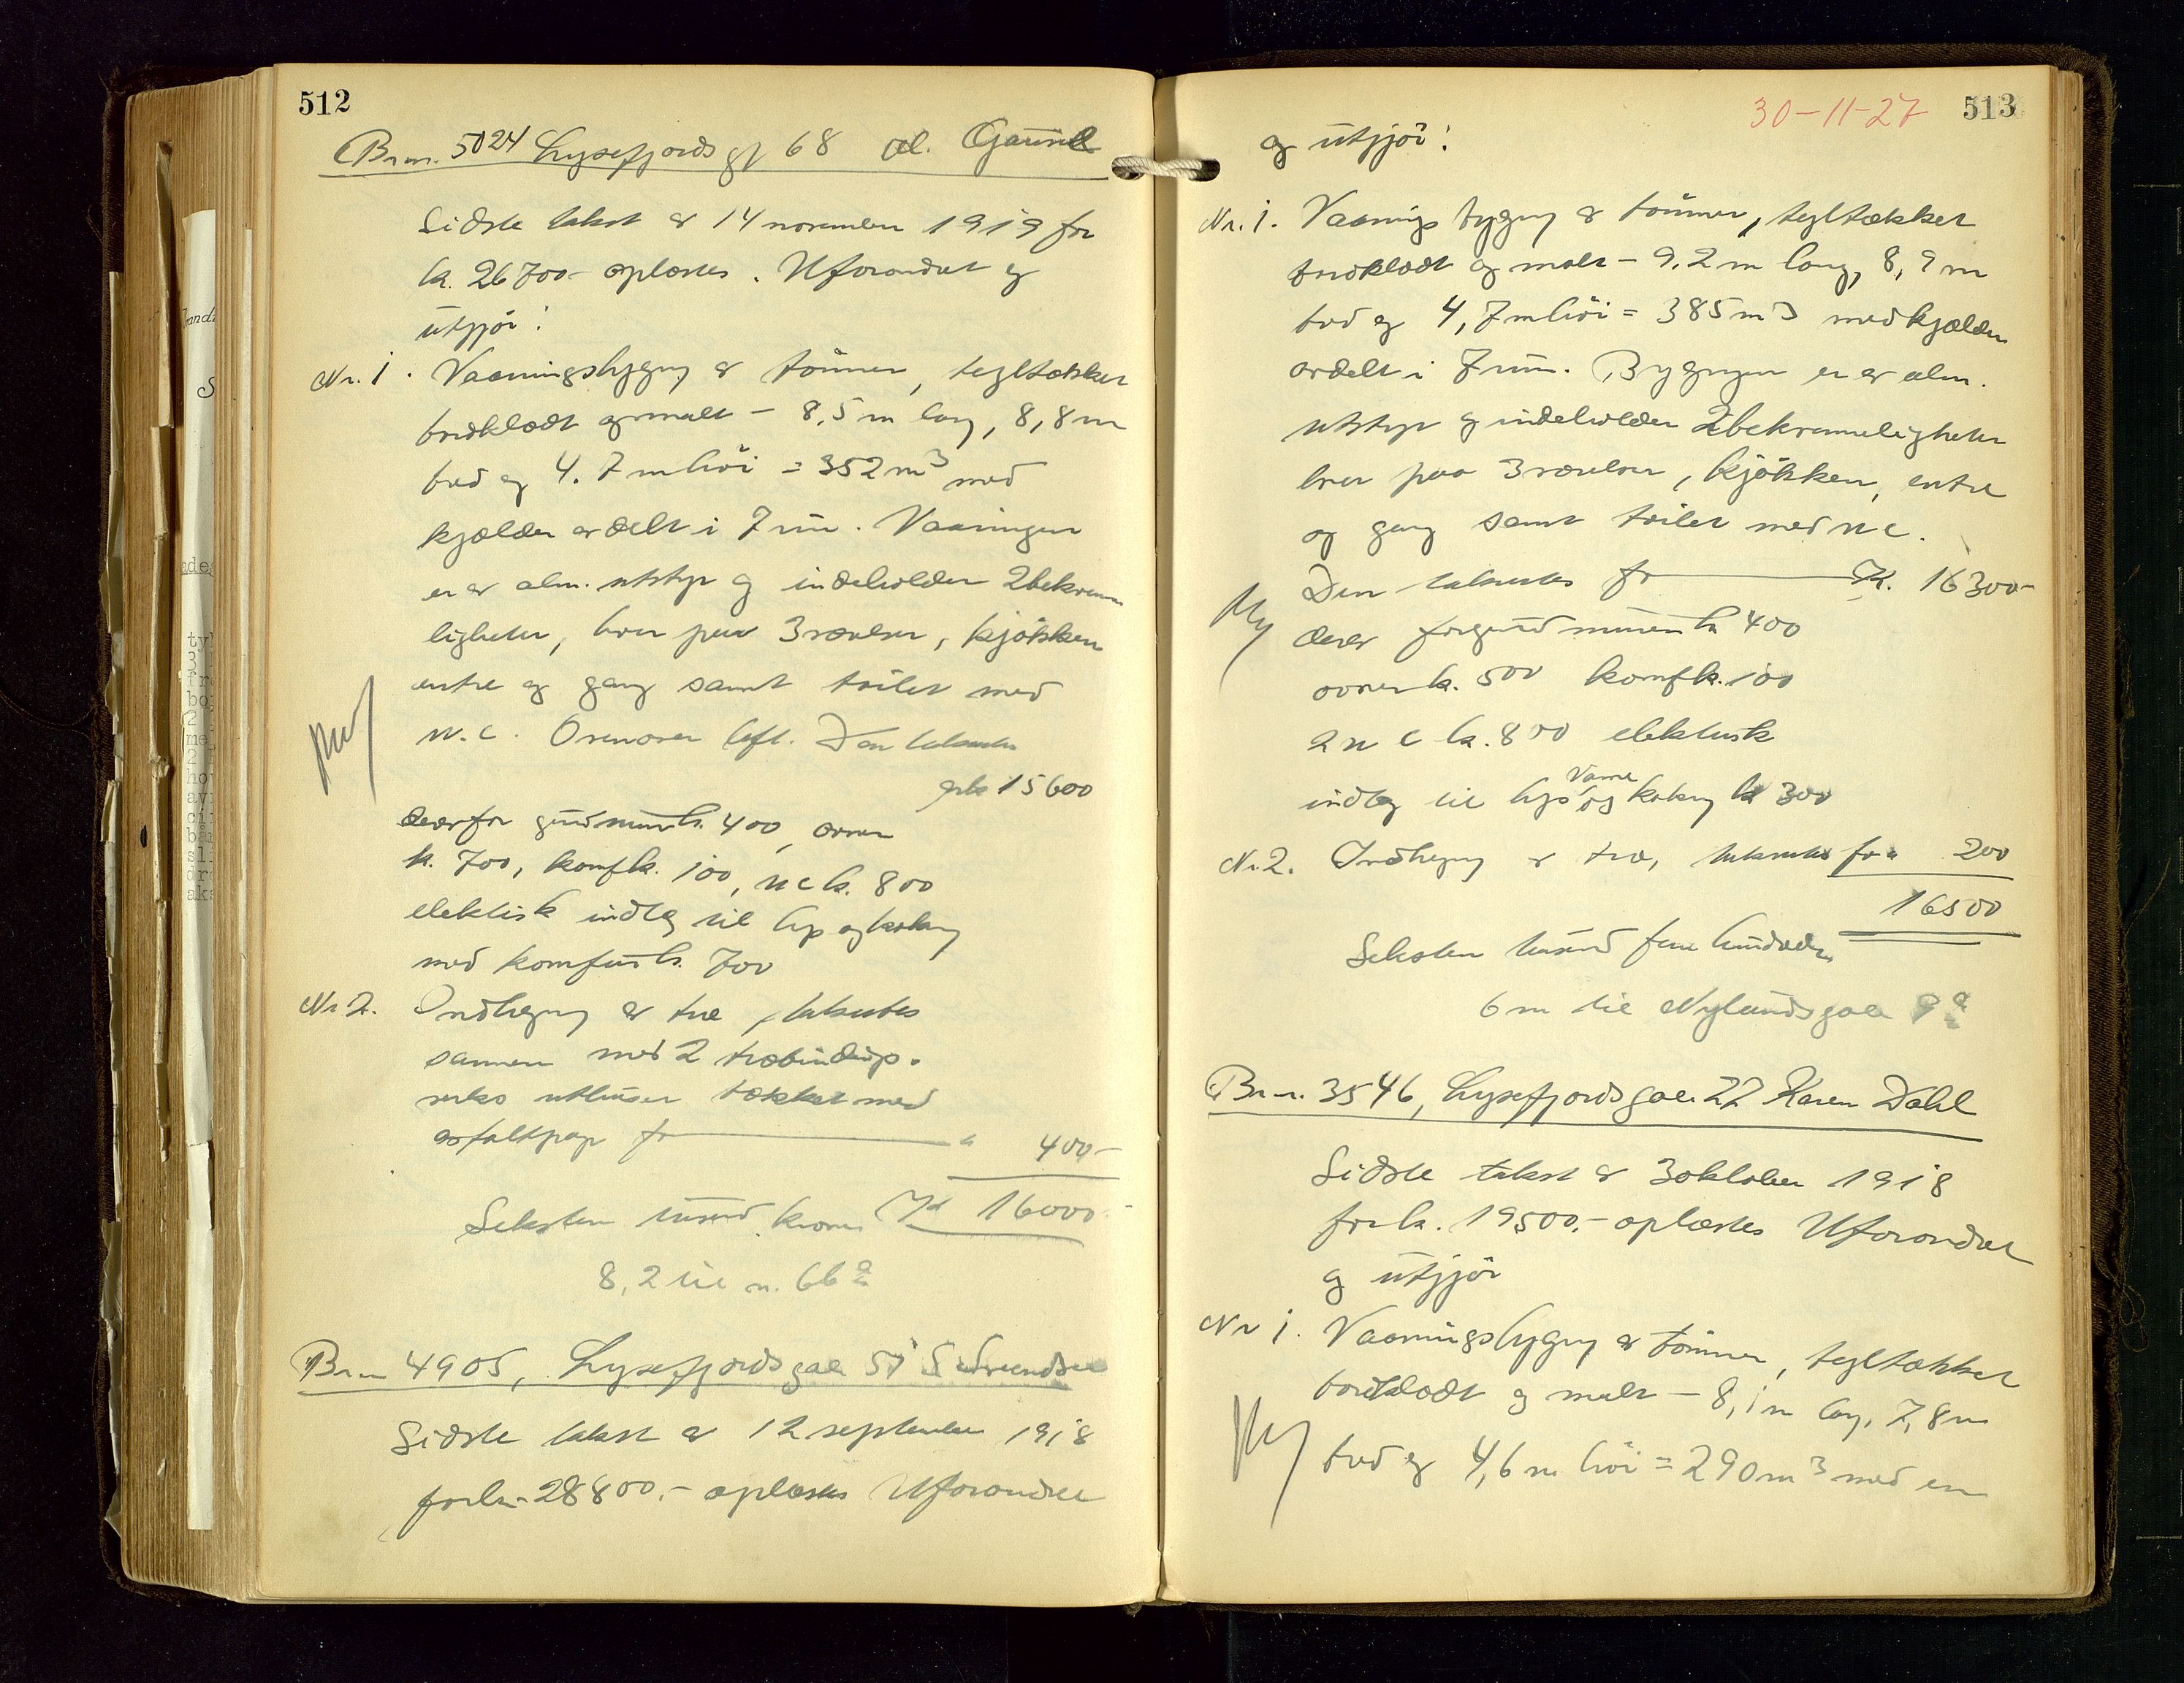 512
Brnr. 5024 Lysefjords gt 68 Gaurud
Sidste takst av 14 november 1919 for
kr. 26700- oplæstes. Uforandret og
utgjør:
Nr. 1. Vaaningsbygning av tømmer, tegltækket
bordklædt og malt - 8,5 m lang, 8,8 m
bred og 4.7 m høi = 352 m3 med
kjælder avdelt i 7 rum. Vaaningen
er av alm. utstyr og indeholder 2 bekvem
ligheter, hver paa 3 værelser, kjøkken
entre og gang samt toilet med
w.c. Ovenover loft. Den takseres
for kr 15600
derav for grundmur kr. 400, ovner
kr. 700, komf kr. 100, wc kr. 800
elektrisk indlæg til lys og kokning
med komfur kr. 700
Nr 2. Indhegning av træ, takseres
sammen med 2 træbindings-
verks uthuser tækket med
asfaltpap for " 400-
Seksten tusind kroner Kr 16000.-
8,2 til n. 66
Brnr 4905, Lysefjordsgate 57
Sidste takst av 12 september 1918
for kr. 28800.- oplæstes Uforandret
30-11-27 513
og utgjør:
Nr. 1. Vaanings bygning av tømmer, tegltækket
bordklædt og malt - 9,2 m lang, 8,9 m
bred og 4,7 m høi = 385 m3 med kjælder
avdelt i 7 rum. Bygningen er av alm.
utstyr og indeholder 2 bekvemmeligheter
hver paa 3 værelser, kjøkken, entre
og gang samt toilet med w c.
Den takseres for Kr. 16300-
derav for grundmuren kr 400
ovner kr. 500 komf kr. 100
2 w c kr. 800 elektrisk
indlæg til lys varme og kokning kr 300
Nr 2. Indhegning av træ, takseres for " 200
16500
Seksten tusind fem hundrede
6 m til Nylundsgate 9
Brnr. 3546, Lysefjordsgate 22 Karen Dahl
Sidste takst av 3 oktober 1918
for kr. 19500.- oplæstes Uforandret
og utgjør
Nr 1. Vaaningsbygning av tømmer, tegltækket
bordklædt og malt - 8,1 m lang, 7,8 m
bred og 4,6 m høi = 290 m3 med en